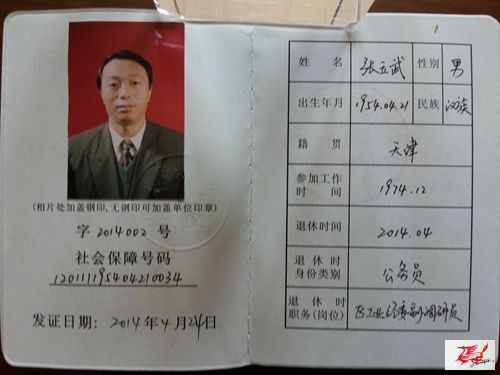 (相片处加盖钢印,无钢印可加盖单位印章)
字 2014002 号
社会保障号码
120111195404210034
发证日期: 2014年4月24日
姓名 张立武 性别 男
出生年月 1954.04.21 民族 汉族
籍贯 天津
参加工作时间 1974.12
退休时间 2014.04
退休时身份类别 公务员
退休时职务(岗位) 区工业经委副调研员